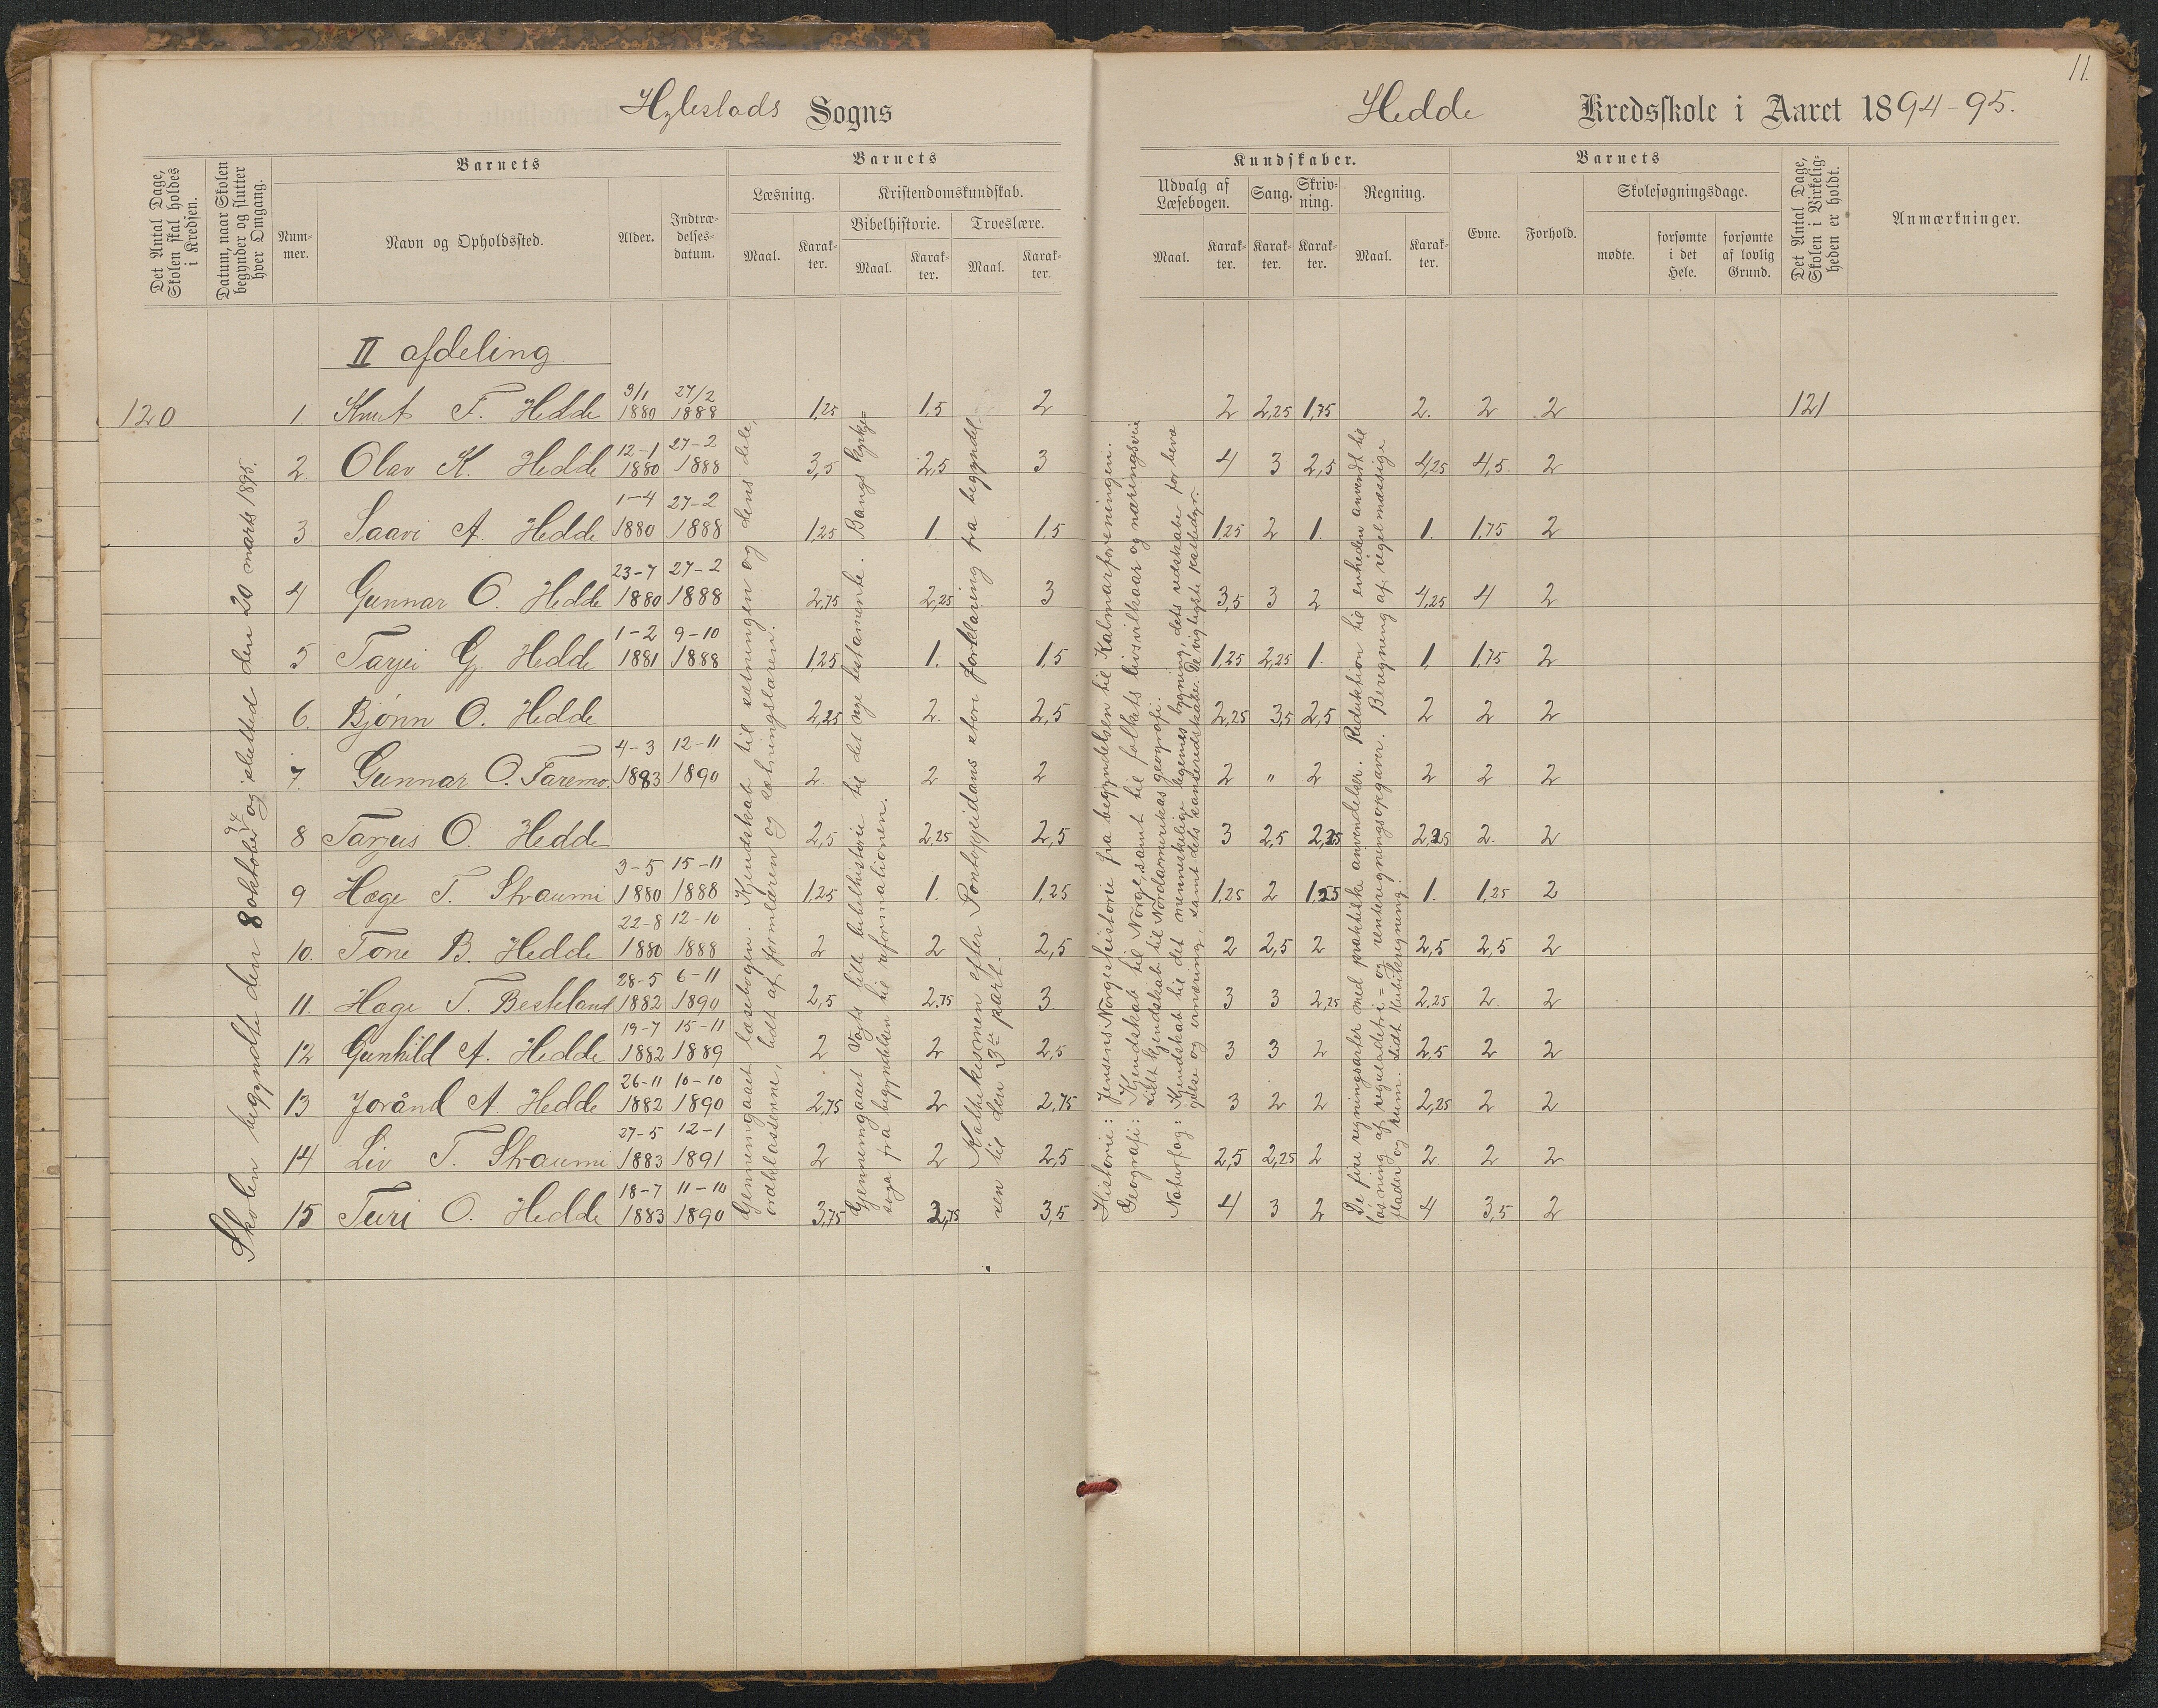 11.
Hylestads Sogns
Hedde Kredsskole i Aaret 1894-95.
Det Antal Dage, Skolen skal holdes i Kredsen.
Datum, naar Skolen begynder og slutter hver Omgang.
Barnets
Num-mer.
Navn og Opholdssted.
Alder.
Indtræ-delses-datum.
Barnets
Læsning.
Maal.
Karak-ter.
Kristendomskundskab.
Bibelhistorie.
Maal.
Karak-ter.
Troeslære.
Maal.
Karak-ter.
Kundskaber.
Udvalg af Læsebogen.
Maal.
Karak-ter.
Sang.
Karak-ter.
Skriv-ning.
Karak-ter.
Regning.
Maal.
Karak-ter.
Barnets
Evne.
Forhold.
Skolesøgningsdage.
mødte.
forsømte i det Hele.
forsømte af lovlig Grund.
Det Antal Dage, Skolen i Virkelig-heden er holdt.
Anmærkninger.
II afdeling
120 1. Knut T. Hedde 9/1 1880 27/2 1888 1,25 1,5 2 2 2,25 1,75 2. 2 2 121
2. Olav K. Hedde 12-1 1880 27-2 1888 3,5 2,5 3 4 3 2,5 4,25 4,5 2
3 Saavi A. Hedde 1-4 1880 27-2 1888 1,25 1. 1,5 1,25 2 1. 1. 1,75 2
4 Gunnar O. Hedde 23-7 1880 27-2 1888 2,75 2,25 3 3,5 3 2 4,25 4 2
5 Tarjei G. Hedde 1-2 1881 9-10 1888 1,25 1. 1,5 1,25 2,25 1. 1. 1,75 2
6. Bjønn O. Hedde 2,25 2. 2,5 2,25 3,5 2,5 2 2 2
7. Gunnar O. Faremo. 4-3 1883 12-11 1890 2. 2 2 2 " 2 2 2 2
8 Tarjus O. Hedde 2,5 2,25 2,5 3 2,5 2,25 2,25 2. 2
9 Hæge T. Straumi 3-5 1880 15-11 1888 1,25 1. 1,25 1,25 2 1,25 1. 1,25 2
10. Tone B. Hedde 22-8 1880 12-10 1888 2 2 2,5 2 2,5 2 2,5 2,5 2
11. Hæge T. Besteland 28-5 1882 6-11 1890 2,5 2,75 3. 3 3 2,25 2,25 2. 2
12 Gunhild A. Hedde 19-7 1882 15-11 1889 2 2 2,5 3 3 2 2,5 2 2
13 Joránd A. Hedde 26-11 1882 10-10 1890 2,75 2 2,75 3 2 2 2,25 2 2
14 Liv T. Straumi 27-5 1883 12-1 1891 2 2 2,5 2,5 2,25 2 2. 2 2
15 Turi O. Hedde 18-7 1883 11-10 1890 3,75 2,75 3,5 4 3 2 4 3,5 2
Skolen begyndte den 8 oktober 94 og slutted den 20 marts 1895.
Gjennemgaaet læsebogen. Kjendskab til sætningen og dens dele,
ordklasserne, lidt af formlæren og sætningslæren.
Gjennemgaaet Vogts lille bibelhistorie til det nye testamente. Bangs kyrkje=
soga fra begyndelsen til reformationen.
Kathekismen efter Pontoppidans store forklaring fra begyndel=
sen til den 3die part.
Historie: Jensens Norgeshistorie fra begyndelsen til Kalmarforeningen.
Geografi: Kjendskab til Norge, samt til folkets livsvilkaar og næringsveie
Lidt kjendskab til Nordamerikas geografi.
Naturfag: Kjendskab til det menneskelige legemes bygning, dets redskabe for bevæ
gelse og ernæring, samt dets sanseredskabe. De vigtigste kattedyr.
De fire regningsarter med praktiske anvendelser. Reduktion til enheden anvendt til
løsning af reguladetri= og renteregningsopgaver. Beregning af regelmæssige
flader og rum. Lidt kubikregning.